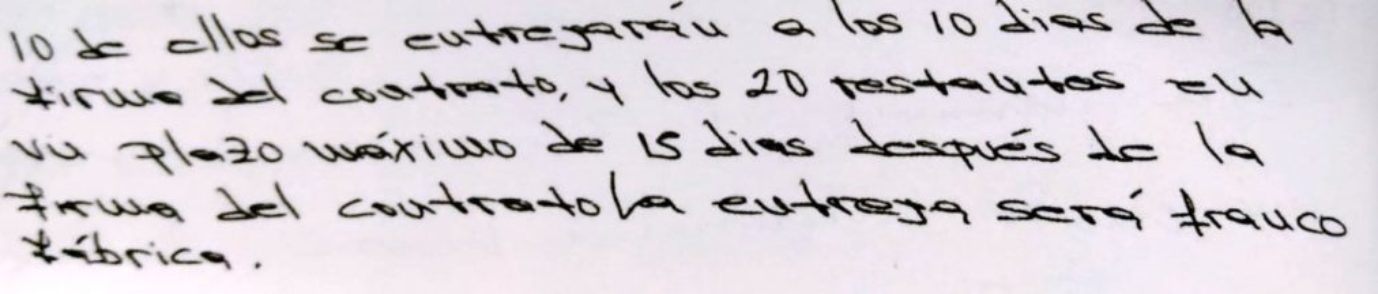 10 de ellos se entregarán a los 10 dias de la
firma del contrato, y los 20 restantes en
un plazo máximo de 15 dias después de la
firma del contrato la entrega será franco
fábrica.